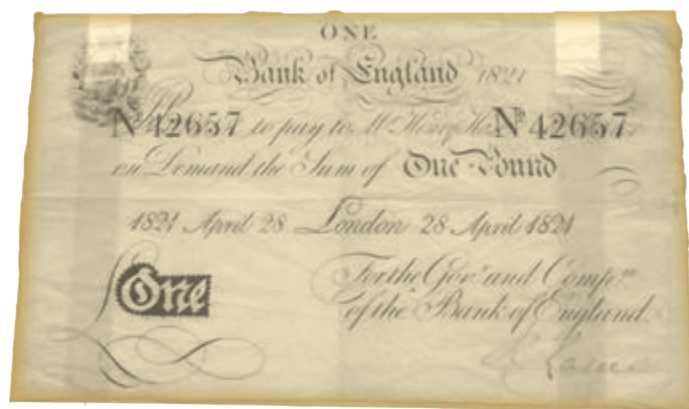 ONE
Bank of England 1821
I Promise to pay to Mr. Henry Hase
No 42657 No 42657
on Demand the Sum of One Pound
1821 April 28 London 28 April 1821
£ One
For the Govr. and Compa.
of the Bank of England.